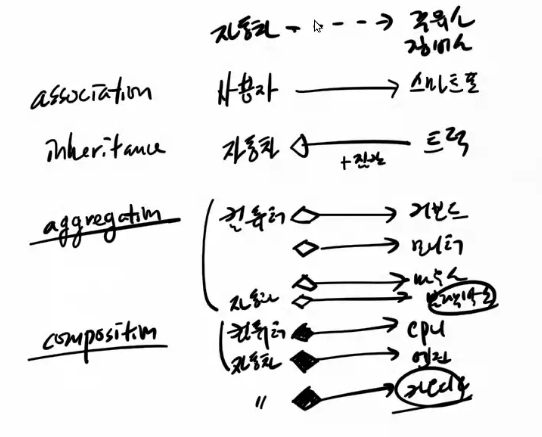 자동차 주유소
정비소
association 사용자 스마트폰
inheritance 자동차 트럭
aggregation 컴퓨터 키보드
모니터
마우스
자동차
composition 컴퓨터 CPU
자동차 엔진
〃